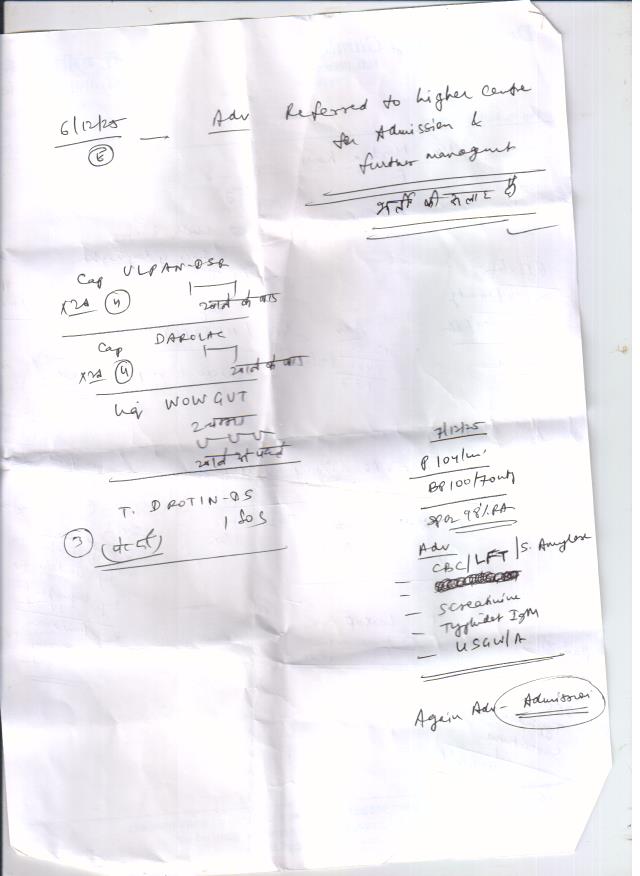 6/12/25
(E)
— Adv Referred to higher centre
for Admission &
further managment
भर्ती की सलाह दी
Cap VLPAN-DSR
खाने के बाद
Cap DAROLAC
खाने के बाद
liq WOW GUT
2 चम्मच
खाने से पहले
T. DROTIN-DS
1 SOS
(3)
7/12/25
P 104/mi
BP 100/70
SPO2 98% RA
Adv
CBC/LFT/S. Amylase
S creatinine
Typhidot IgM
USG W/A
Again Adv - Admission